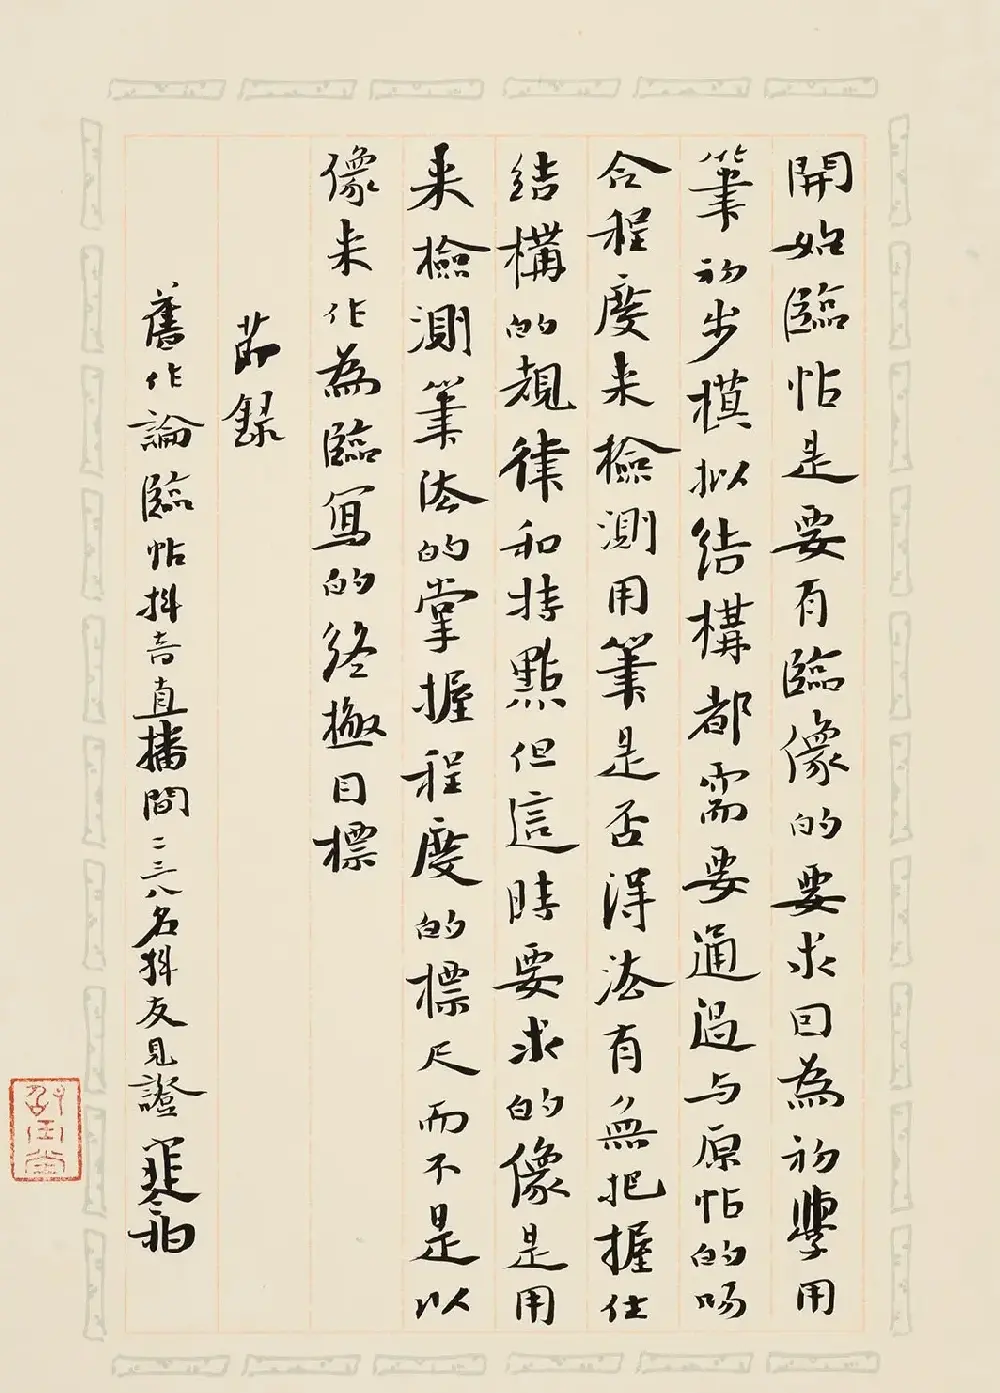 開始臨帖是要有臨像的要求回為初學用
筆初步模拟结構都需要通過与原帖的吻
合程度来檢測用筆是否得法有無把握住
结構的規律和特點但這時要求的像是用
来檢測筆法的掌握程度的標尺而不是以
像来作為臨寫的终極目標
節録
舊作論臨帖抖音直播間二三八名抖友見證